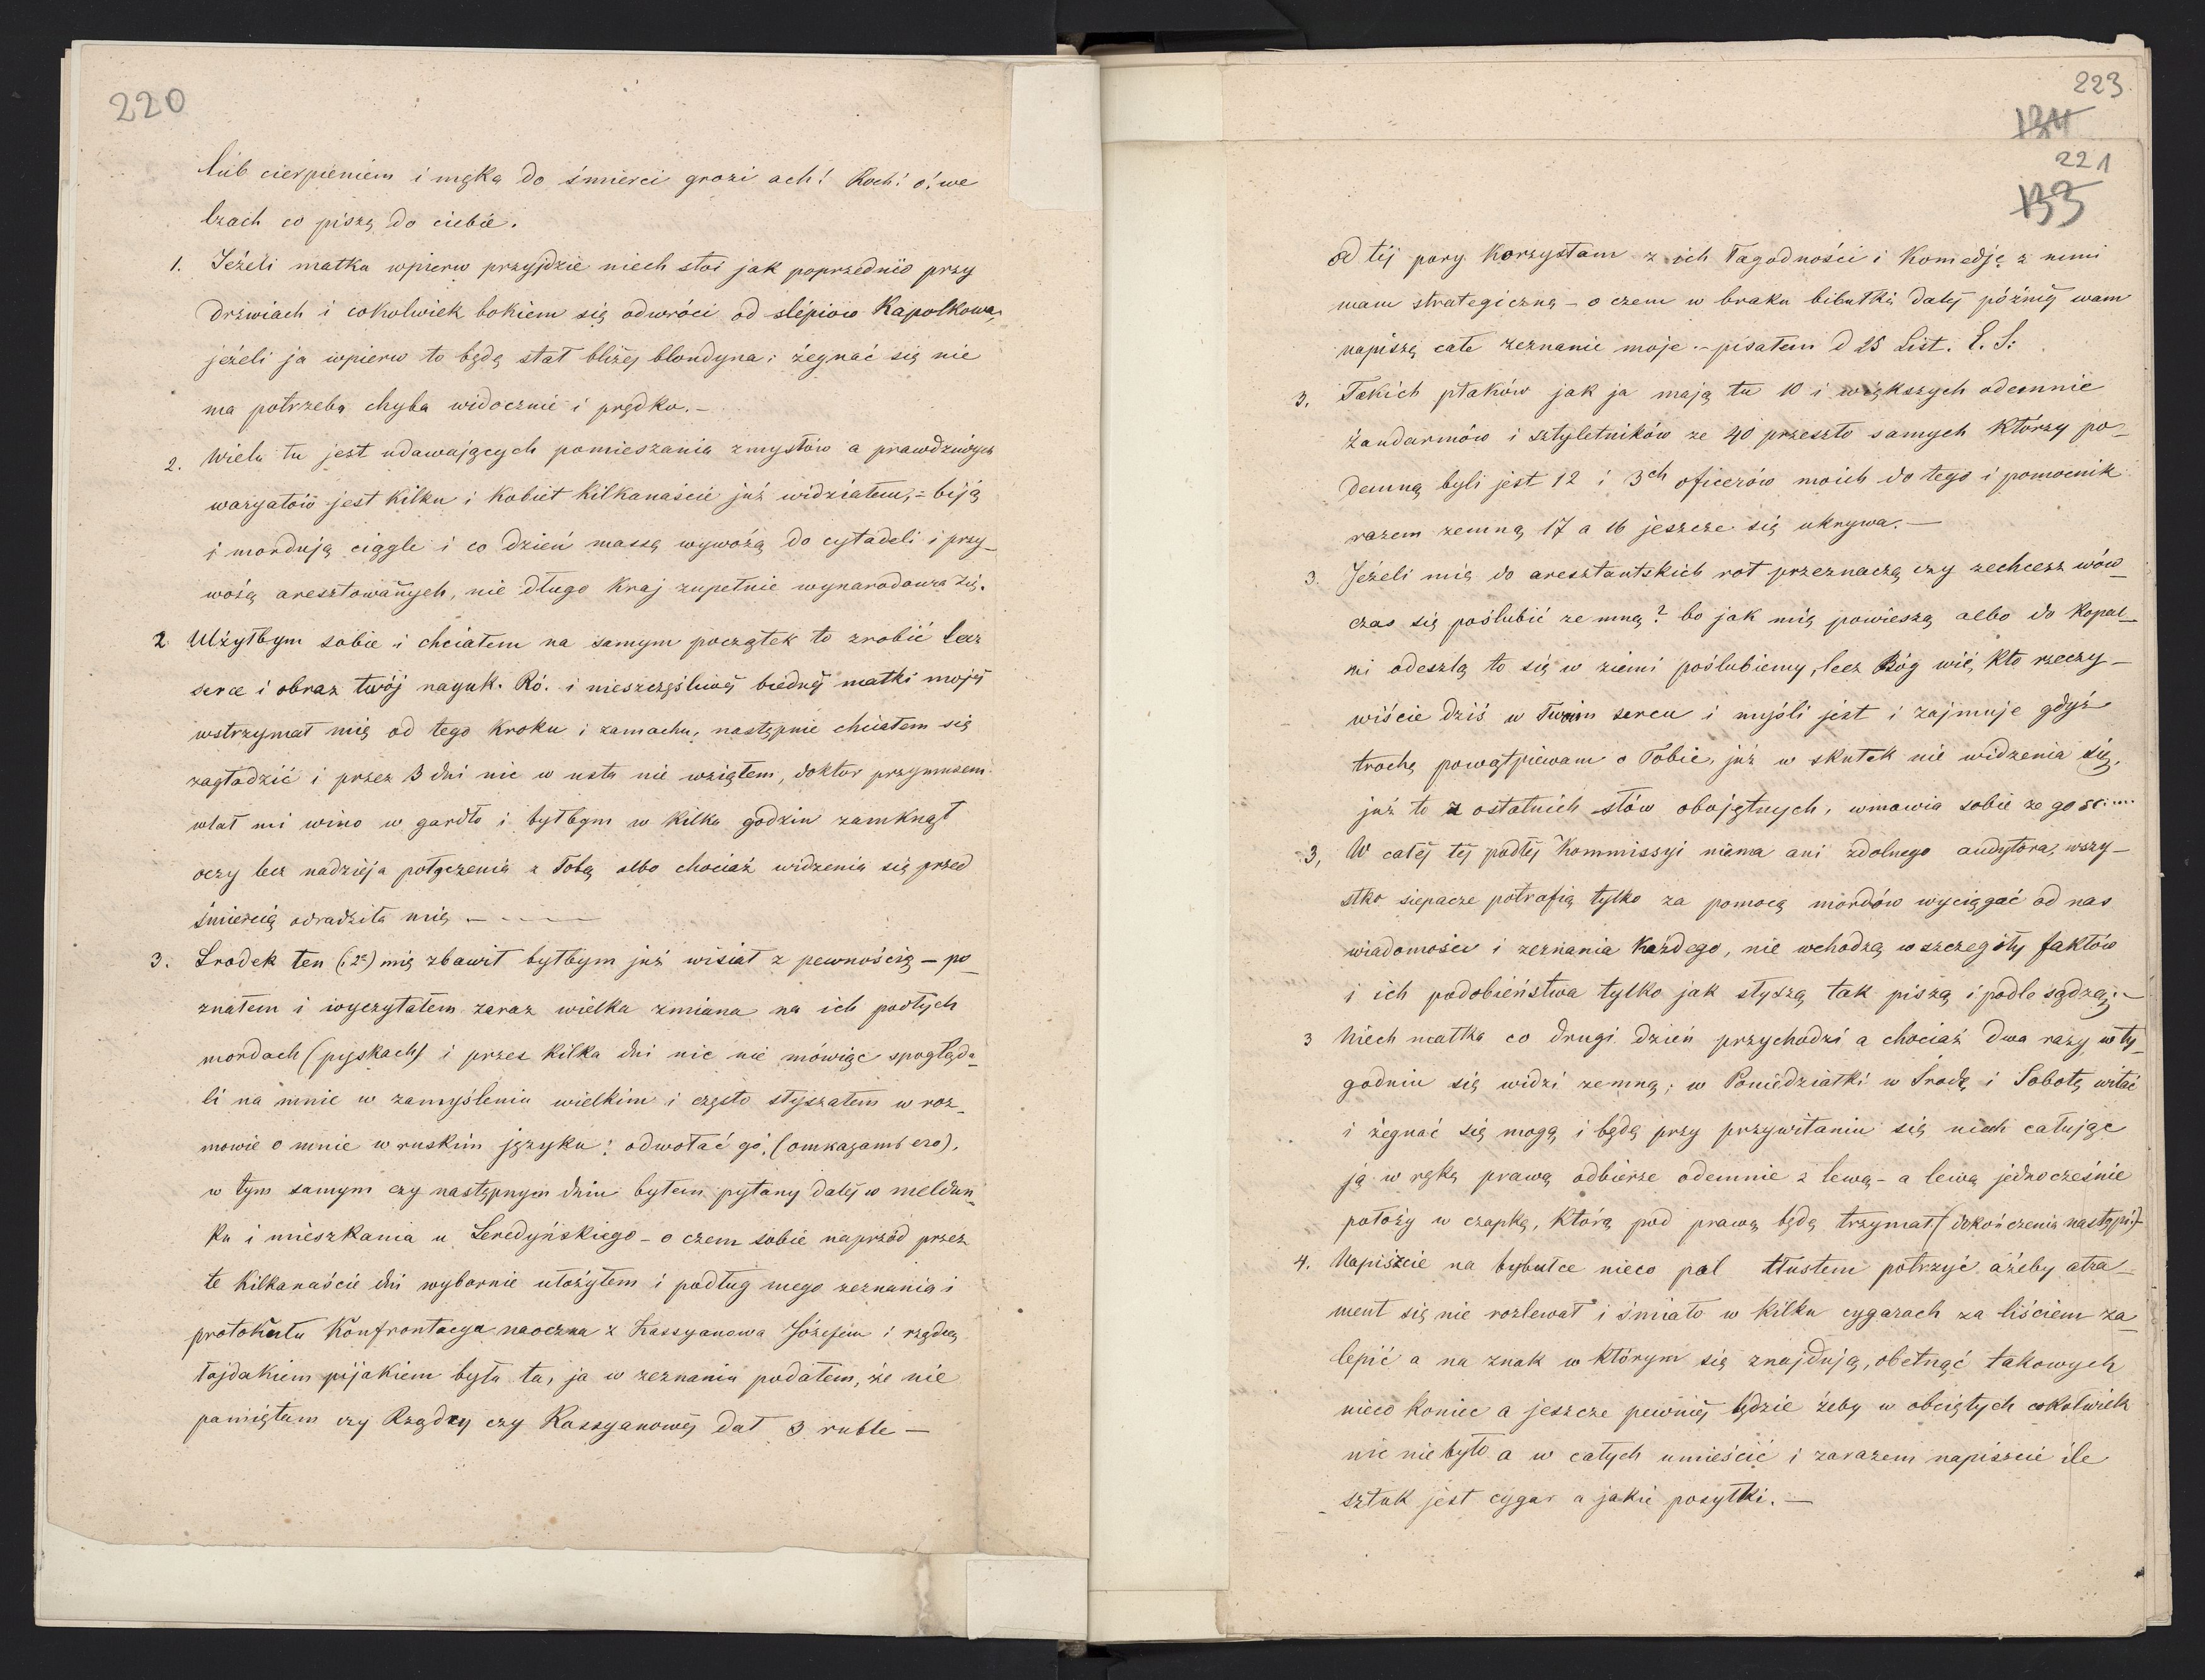 220
lub cierpieniem i męką do śmierci grozi ach! Koch! o! we
łzach co piszę do ciebie.
1. Jeżeli matka wpierw przyjdzie niech stoi jak poprzednio przy
drzwiach i cokolwiek bokiem się odwróci od slépiow Kapolkowa,
jeżeli ja wpierw to będę stał bliżej blondyna; żegnać się nie
ma potrzeba chyba widocznie i prędko. —
2. Wielu tu jest udawających pomieszania zmysłów a prawdziwych
waryatów jest kilku i kobiet kilkanaście już widziałem, – biją
i mordują ciągle i co dzień massę wywożą do cytadeli i przy_
wożą aresztowanych, nie długo kraj zupełnie wynaradawia się.
2 Użyłbym sobie i chciałem na samym początek to zrobić lecz
serce i obraz twój najuk. Ró. i nieszczęśliwéj biednéj matki mojéj
wstrzymał mię od tego kroku i zamachu, następnie chciałem się
zagłodzić i przez 3 dni nic w usta nie wziąłem, doktor przymusem
wlał mi wino w gardło i byłbym w kilka godzin zamknął
oczy lecz nadzieja połączenia z Tobą albo chociaż widzenia się przed
śmiercią odradziła mię — — —
3. Srodek ten (: 2e) mię zbawił byłbym już wisiał z pewnością — po_
znałem i wyczytałem zaraz wielka zmiana na ich podłych
mordach (pyskach) i przez kilka dni nic nie mówiąc spogląda_
li na mnie w zamyśleniu wielkim i często słyszałem w roz_
mowie o mnie w ruskim języku: odwołać go, (отказать его),
w tym samym czy następnym dniu byłem pytany daléj w meldun_
ku i mieszkania u Seredyńskiego – o czem sobie naprzód przez
te kilkanaście dni wybornie ułożyłem i podług mego zeznania i
protokułu Konfrontacya naoczna z Kassyanowa Józefem i rządcą
łajdakiem pijakiem była ta, ja w zeznaniu podałem, że nie
pamiętam czy Rządcy czy Kassyanowéj dał 3 ruble —
223.
134
221
133
od téj pory Korzystam z ich łagodności i Komedję z nemi
mam strategiczną – o czem w braku bibułki daléj później wam
napiszę całe zeznanie moje. – pisałem d 25 List. E. S:
3. Takich ptaków jak ja mają tu 10 i większych odemnie
żandarmów i sztyletników ze 40 przeszło samych którzy po_
demną byli jest 12 i 3ch oficerów moich do tego i pomocnik
razem zemną 17 a 16 jeszcze się ukrywa. —
3. Jeżeli mię do aresztantskich rot przeznaczą czy zechcesz wów_
czas się poślubić ze mną? bo jak mię powieszą albo do kopal_
ni odeszlą to się w ziemi poślubiemy, lecz Bóg wié, kto rzeczy_
wiście dziś w Twoim sercu i myśli jest i zajmuje gdyż
trochę powątpiewam o Tobie, już w skutek nie widzenia się,
już to z ostatnich słów obojętnych, wmawia sobie ze go
3, W całéj téj podłéj Kommissyi niéma ani zdolnego audytora, wszy_
stko siepacze potrafią tylko za pomocą mordów wyciągać od nas
wiadomości i zeznania każdego, nie wchodzą w szczegóły faktów
i ich podobieństwa tylko jak słyszą tak piszą i podle sądzą; —
3 Niech matka co drugi dzień przychodzi a chociaż dwa razy w ty_
godniu się widzi zemną; w Poniedziałki w Środę i Sobotę witać
i żegnać się mogą i będę przy przywitaniu się niech całując
ją w rękę prawą odbierze odemnie z lewą – a lewą jednocześnie
położy w czapkę, którą pod prawą będę trzymał (dokończenie nastąpi)
4. Napiszcie na bybułce nieco pal tłustem potrzyć ażeby atra_
ment się nie rozlewał i śmiało w kilku cygarach za liściem za_
lepić a na znak w którym się znajdują, obetnąć takowych
nieco koniec a jeszcze pewniéj będzie żeby w obciętych cokolwiek
nic nie było a w całych umieścić i zarazem napiszcie ile
sztuk jest cygar a jakie posyłki. —